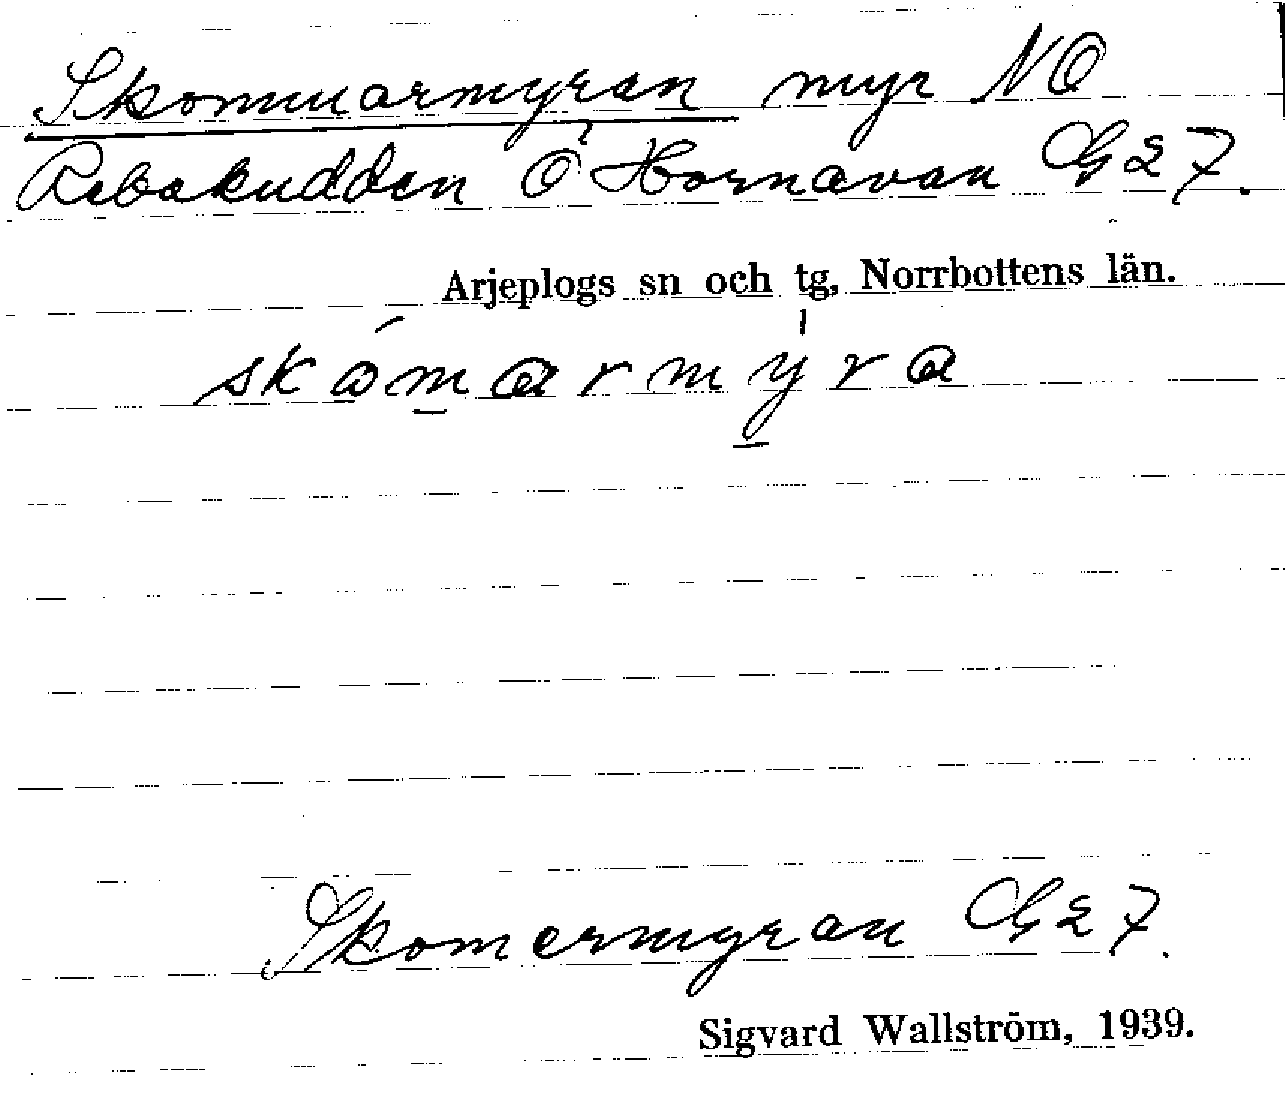 Skommarmyran myr NO
Rebakudden Ö Hornavan G 27.
Arjeplogs sn och tg, Norrbottens län.
skómarmýra
Skomermyran G 27.
Sigvard Wallström, 1939.